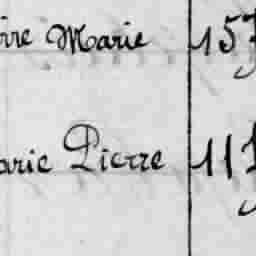 rre Marie 157
arie Pierre 111